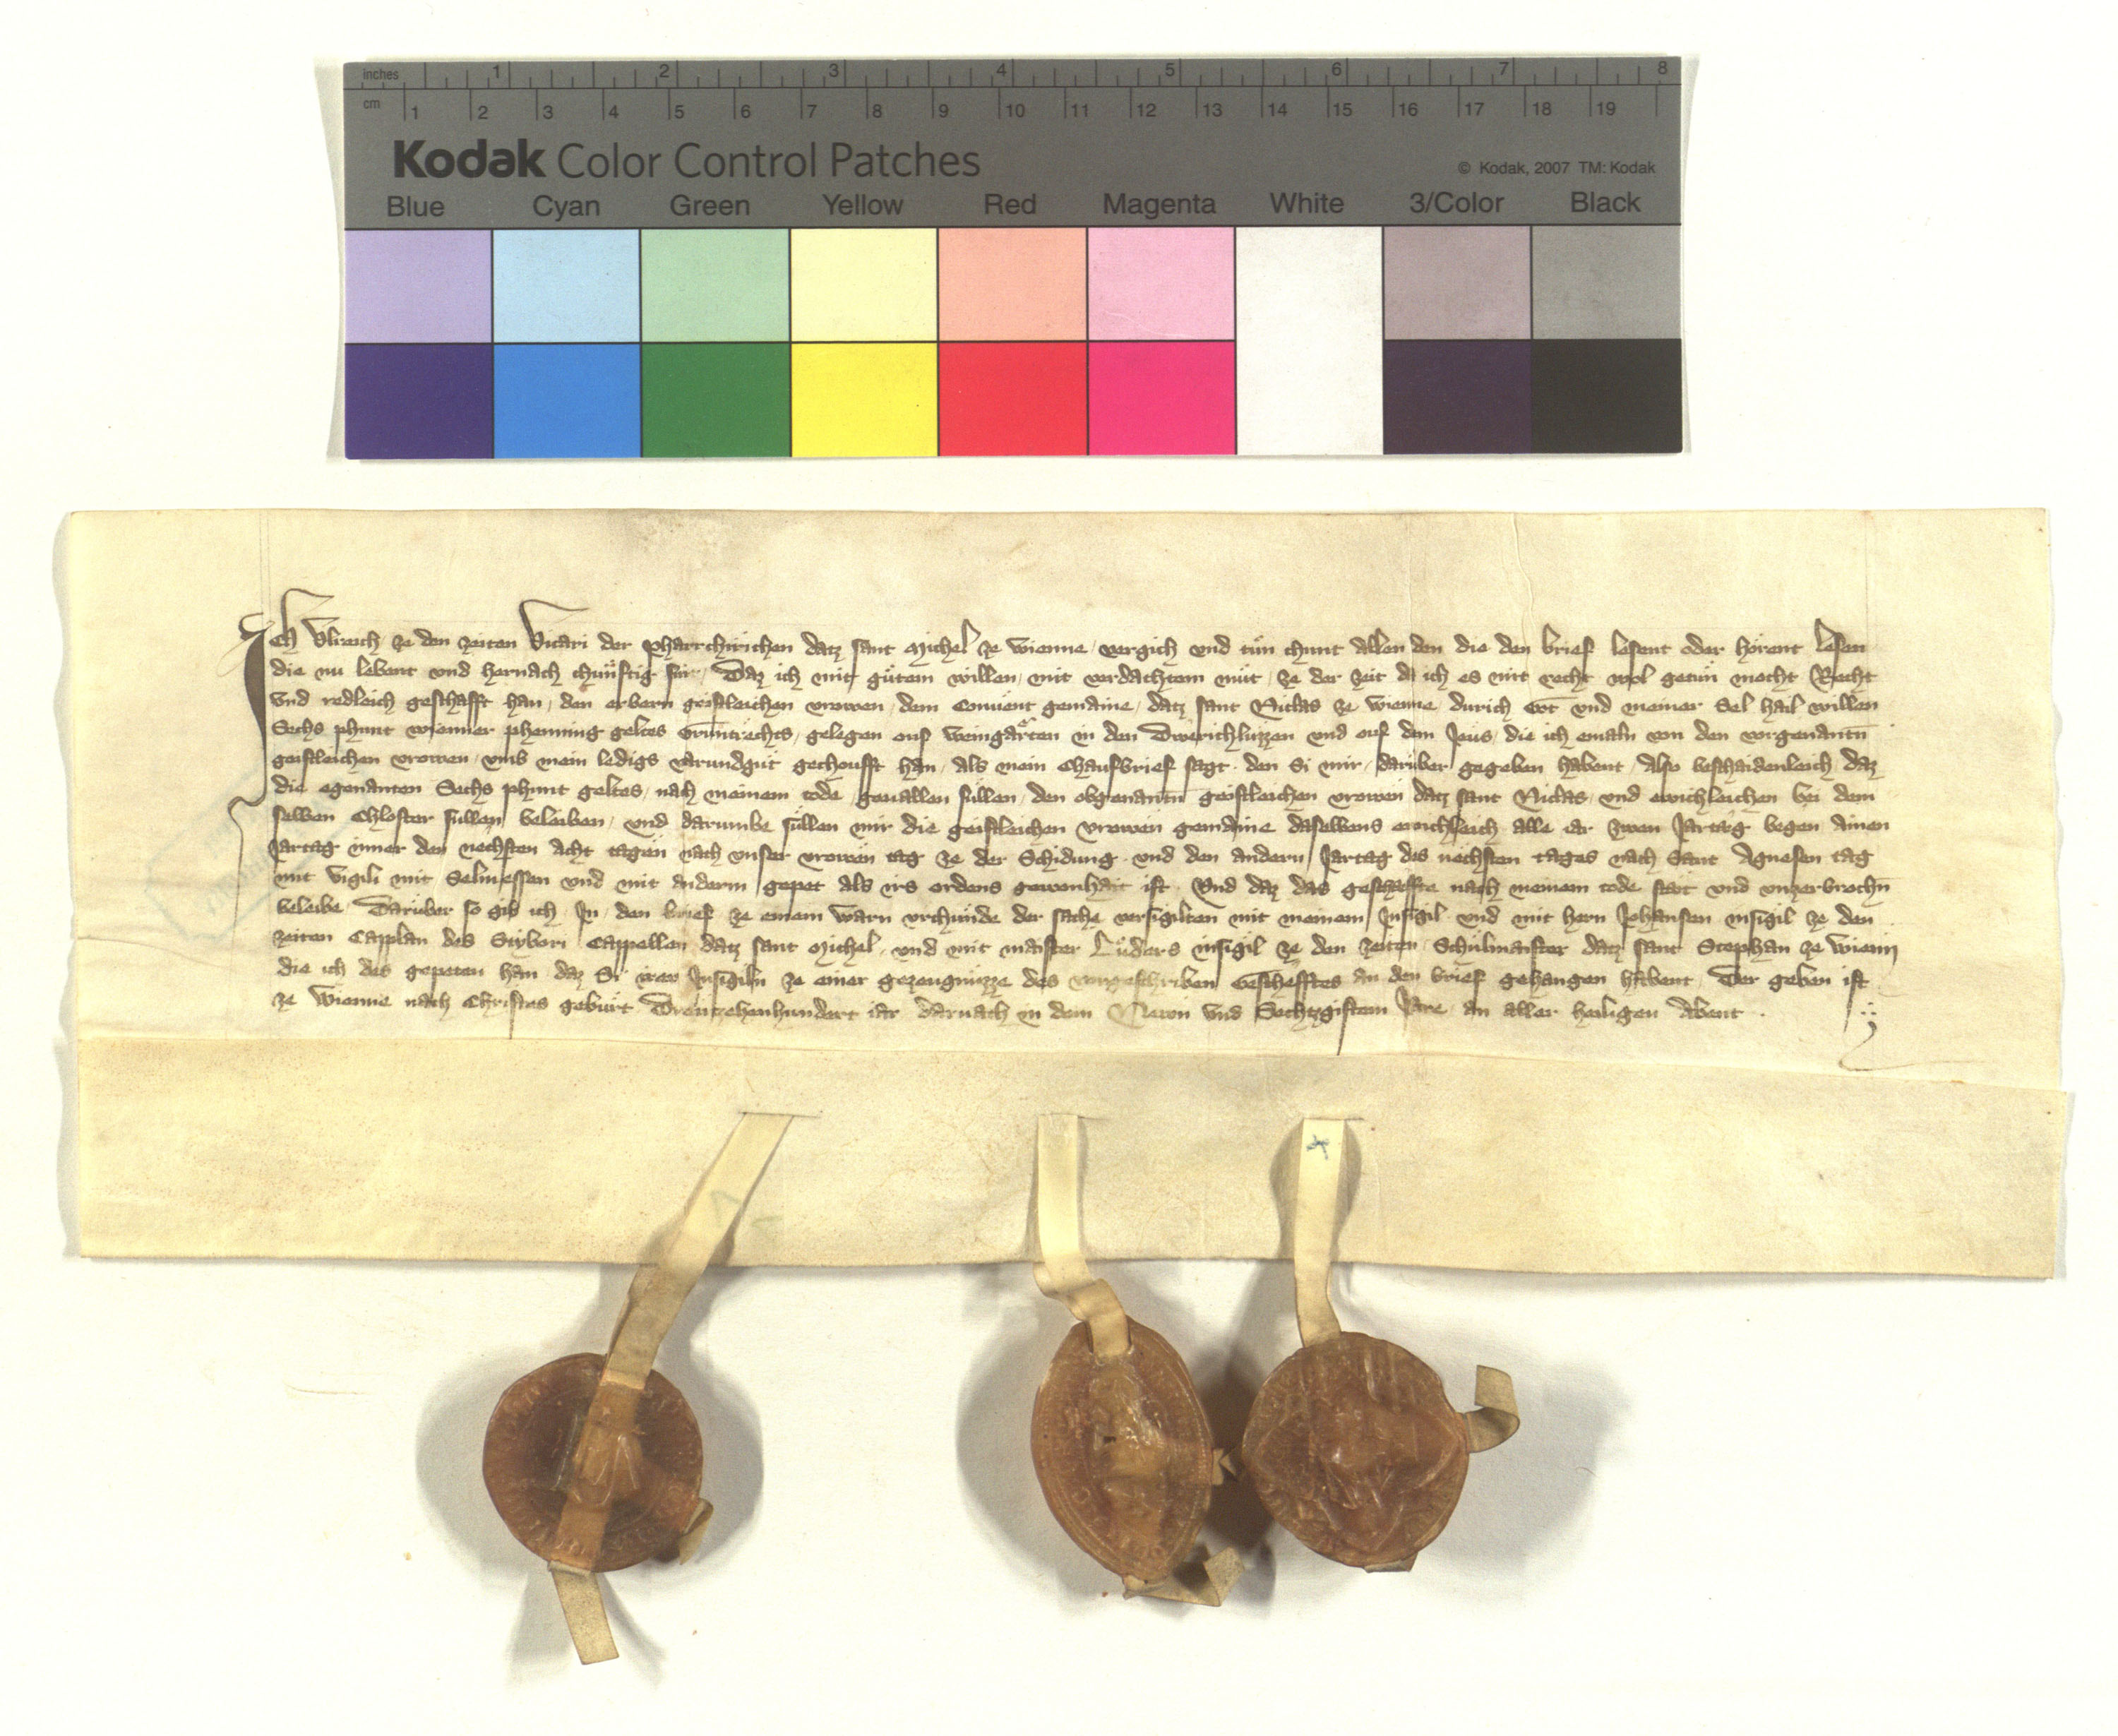 inches 1 2 3 4 5 6 7 8
cm 1 2 3 4 5 6 7 8 9 10 11 12 13 14 15 16 17 18 19
Kodak Color Control Patches
© Kodak, 2007 TM: Kodak
Blue Cyan Green Yellow Red Magenta White 3/Color Black
Ich Ulreich ze den zeiten Vicari der pharrchirichen datz sant Michel ze wienne vergich und tun chunt allen den die den brief lesent oder hörent lesen
die nu lebent und hernach chunftig sint Daz ich mit gutem willen mit verdachtem mut ze der zeit do ich es mit recht wol getun mocht Recht
und redleich geschafft han den erbern geistleichen vrowen dem Convent gemaine datz sant Niclas ze wienne durich Got und meiner Sel hail willen
Sechs phunt wienner phenning geltes Gruntrechts gelegen ouf weingärten in den Twerichluzzen und ouf dem die ich emaln von den vorgenantn
geistleichen vrowen umb mein ledigs varundgut gechoufft han als mein chaufbrief sagt den Si mir daruber gegeben habent also beschaidenleich daz
die egenanten Sechs phunt geltes nach meinem tode gevallen sullen den obgenantn geistleichen vrowen datz sant Niclas und ewichleichen bei dem
selben Chloster sullen beleiben und darumbe sullen mir die geistleichen vrowen gemaine daselbens ewichleich alle iar zwen Jartag begen ainen
Jartag inner den nechsten acht tagen nach unser vrowen tag ze der Schidung und den andern Jartag des nechsten tages nach Sant Agnesen tag
mit Vigili mit Selmessen und mit anderm gepet als irs ordens gewonhait ist Und daz daz geschaffte nach meinem tode stät und unzerbrochn
beleibe Daruber so gib ich In den brief ze einem warn urchunde der sache versigilten mit meinem Insigil und mit hern Johansen insigil ze den
zeiten Capplan des Cappellen datz sant Michel und mit maister Luders insigil ze den zeiten Schulmaister datz sant Stephan ze wienn
die ich des gepeten han daz Si irew Insigiln ze einer gezeugnuzze des vorgeschriben Geschefftes an den brief gehangen habent Der geben ist
ze wienne nach Christes geburt Dreutzehenhundert iar darnach in dem Newn und Sechtzgistem Jare an aller heiligen Abent